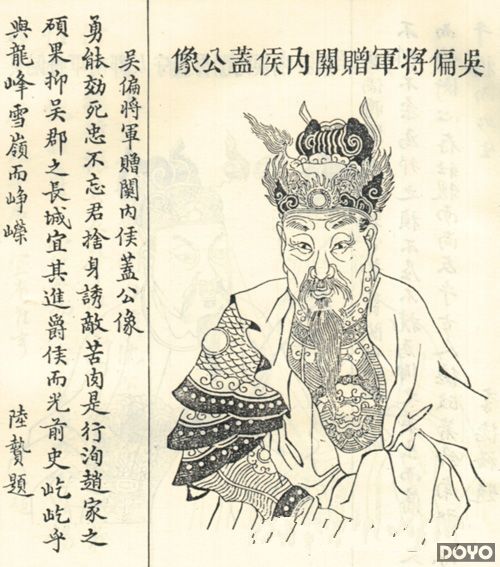 吳偏将軍贈關內侯蓋公像
吳偏將軍贈関內侯蓋公像
勇能効死忠不忘君捨身誘敵苦肉是行洵趙家之
碩果抑吳郡之長城宜其進爵侯而光前史屹屹乎
與龍峰雪嶺而崢嶸
陸贄題
DOYO